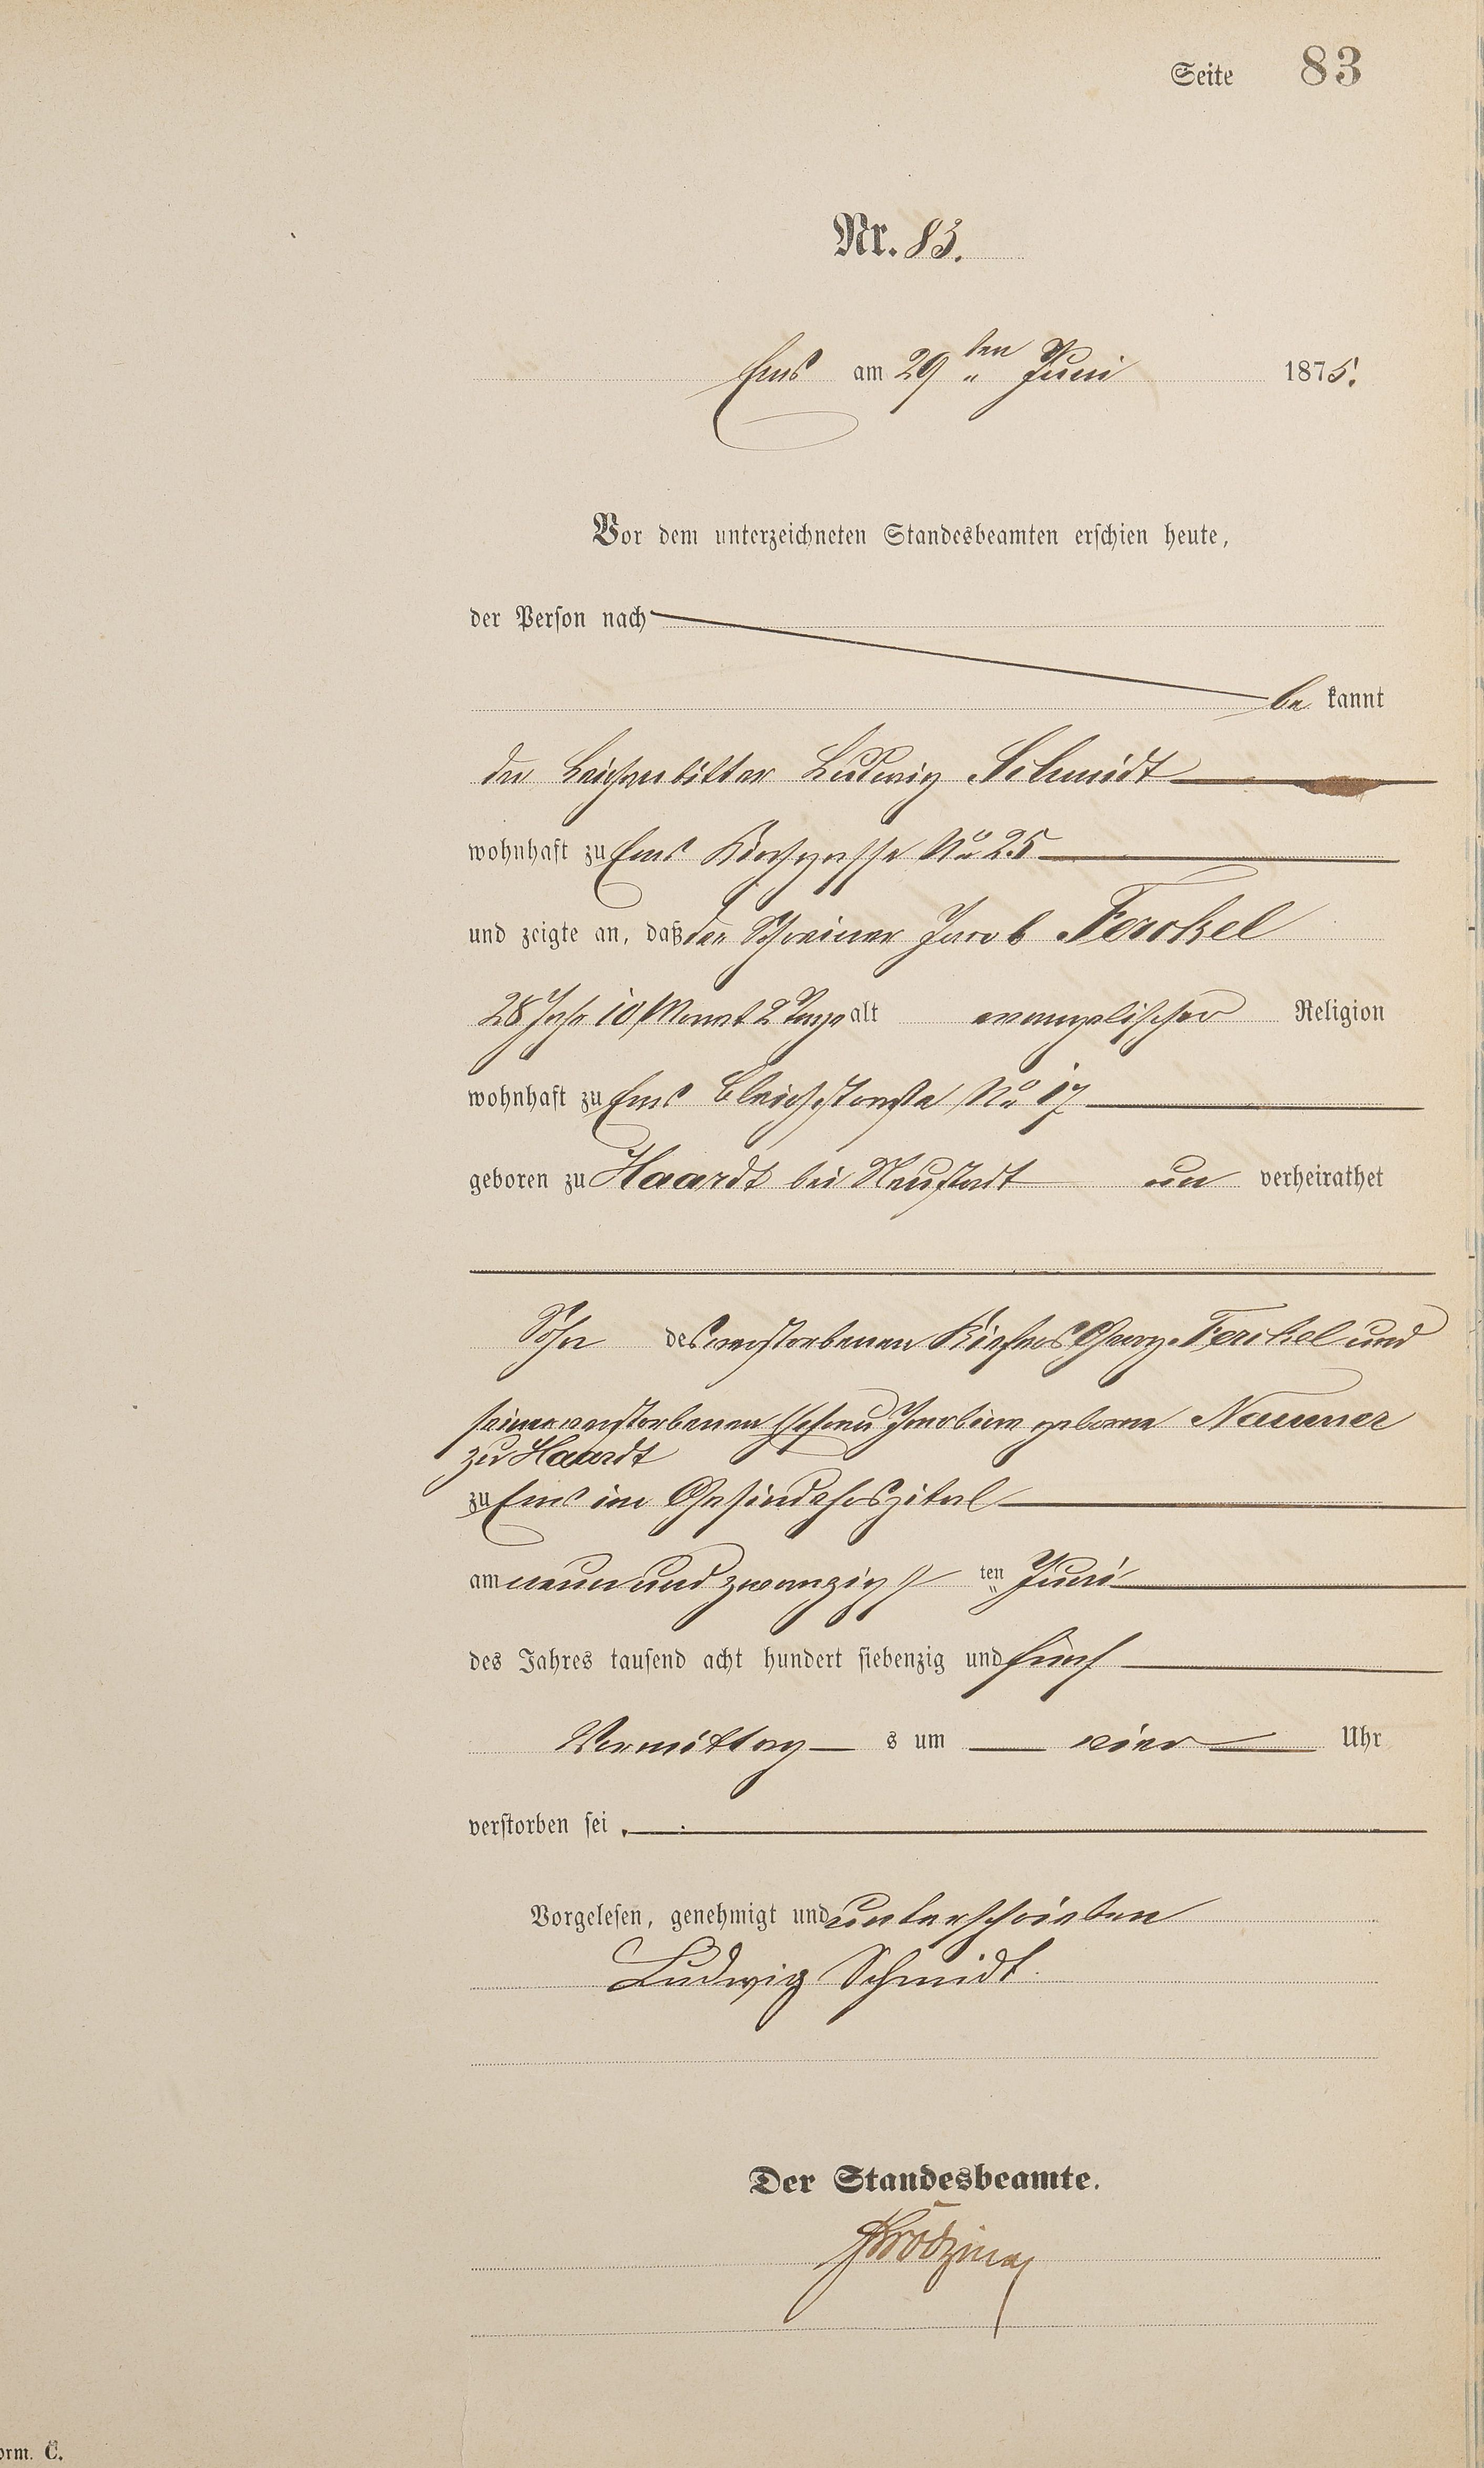 Seite 83
Nr. 83.
Ems am 29ten Juni 1875.
Vor dem unterzeichneten Standesbeamten erschien heute,
der Person nach
be kannt
der Leichenbitter Ludwig Schmidt
wohnhaft zu Ems Kirchgasse No 25
und zeigte an, daß der Schreiner Jacob Ferckel
28 Jahr 10 Monat 2 Tage alt evangelischer Religion
wohnhaft zu Ems Bleichstraße No 17
geboren zu Haardt bei Neustadt un verheirathet
Sohn des verstorbenen Küfers Georg Ferckel und
seiner verstorbenen Ehefrau Jacobine geborne
zu Haardt
zu Ems im Gesindehospital
am neunundzwanzigsten Juni
des Jahres tausend acht hundert siebenzig und fünf
Vormittag s um vier Uhr
verstorben sei.
Vorgelesen, genehmigt und unterschrieben
Ludwig Schmidt.
Der Standesbeamte.
orm. C.